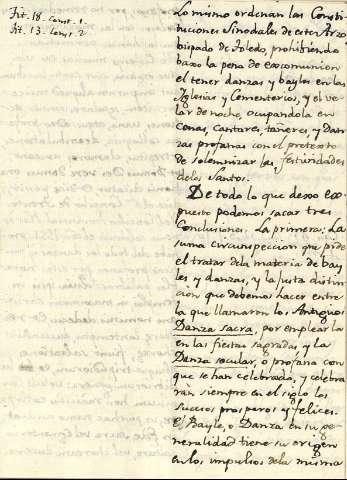 Tit. 18. Const. 1.
Tit. 13. Const. 2
Lo mismo ordenan las Consti-
tuciones Sinodales de este Arzo
bispado de Toledo, prohibiendo
baxo la pena de excomunion
el tener danzas y bayles en las
Iglesias y Cementerios, y el ve-
lar de noche, ocupandola en
cenas, cantares, tañeres, y Dan
zas profanas con el pretexto
de solemnizar las festividades
delos Santos.
De todo lo que dexo ex-
puesto podemos sacar tres
Conclusiones. La primera: La
suma circunspeccion que pide
el tratar dela materia de bay
les y danzas, y la justa distin
cion que debemos hacer entre
la que llamaron los Antiguos
Danza sacra, por emplearla
en las fiestas sagradas y la
Danza secular, o profana con
que se han celebrado, y celebra
rán siempre en el siglo los
sucesos prosperos y felices.
El Bayle, o Danza en su ge-
neralidad tiene su origen
en los impulsos dela misma